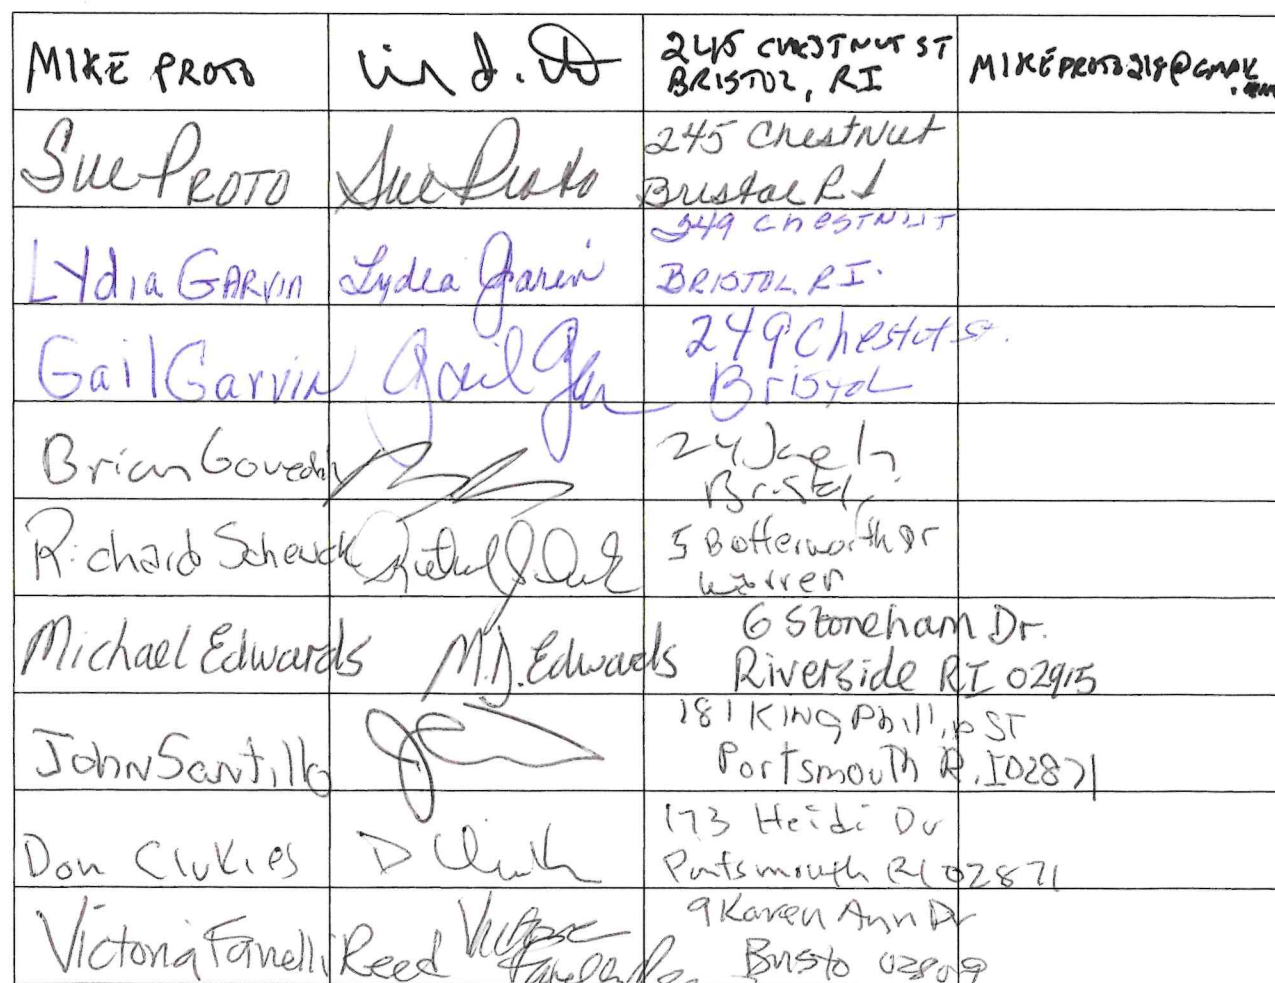 MIKE PROTO
245 CHESTNUT ST
BRISTOL, RI
MIKEPROTO218@GMAIL
.COM
Sue PROTO
Sue Proto
245 Chestnut
Bristol RI
Lydia GARVIN
Lydia Garvin
249 CHESTNUT
BRISTOL, RI.
Gail Garvin
Gail
249 Chestut St.
Bristol
Brian
24 Ln
Bristol
Richard Schenck
5 Butterworth Dr
Warren
Michael Edwards
M.D. Edwards
6 Stoneham Dr.
Riverside RI 02915
John Santillo
181 KING Phillip ST
Portsmouth R.I 02871
Don Clukies
D
173 Heidi Dr
Portsmouth RI 02871
Victoria Fanelli Reed
9 Karen Ann Dr
Bristo 02809